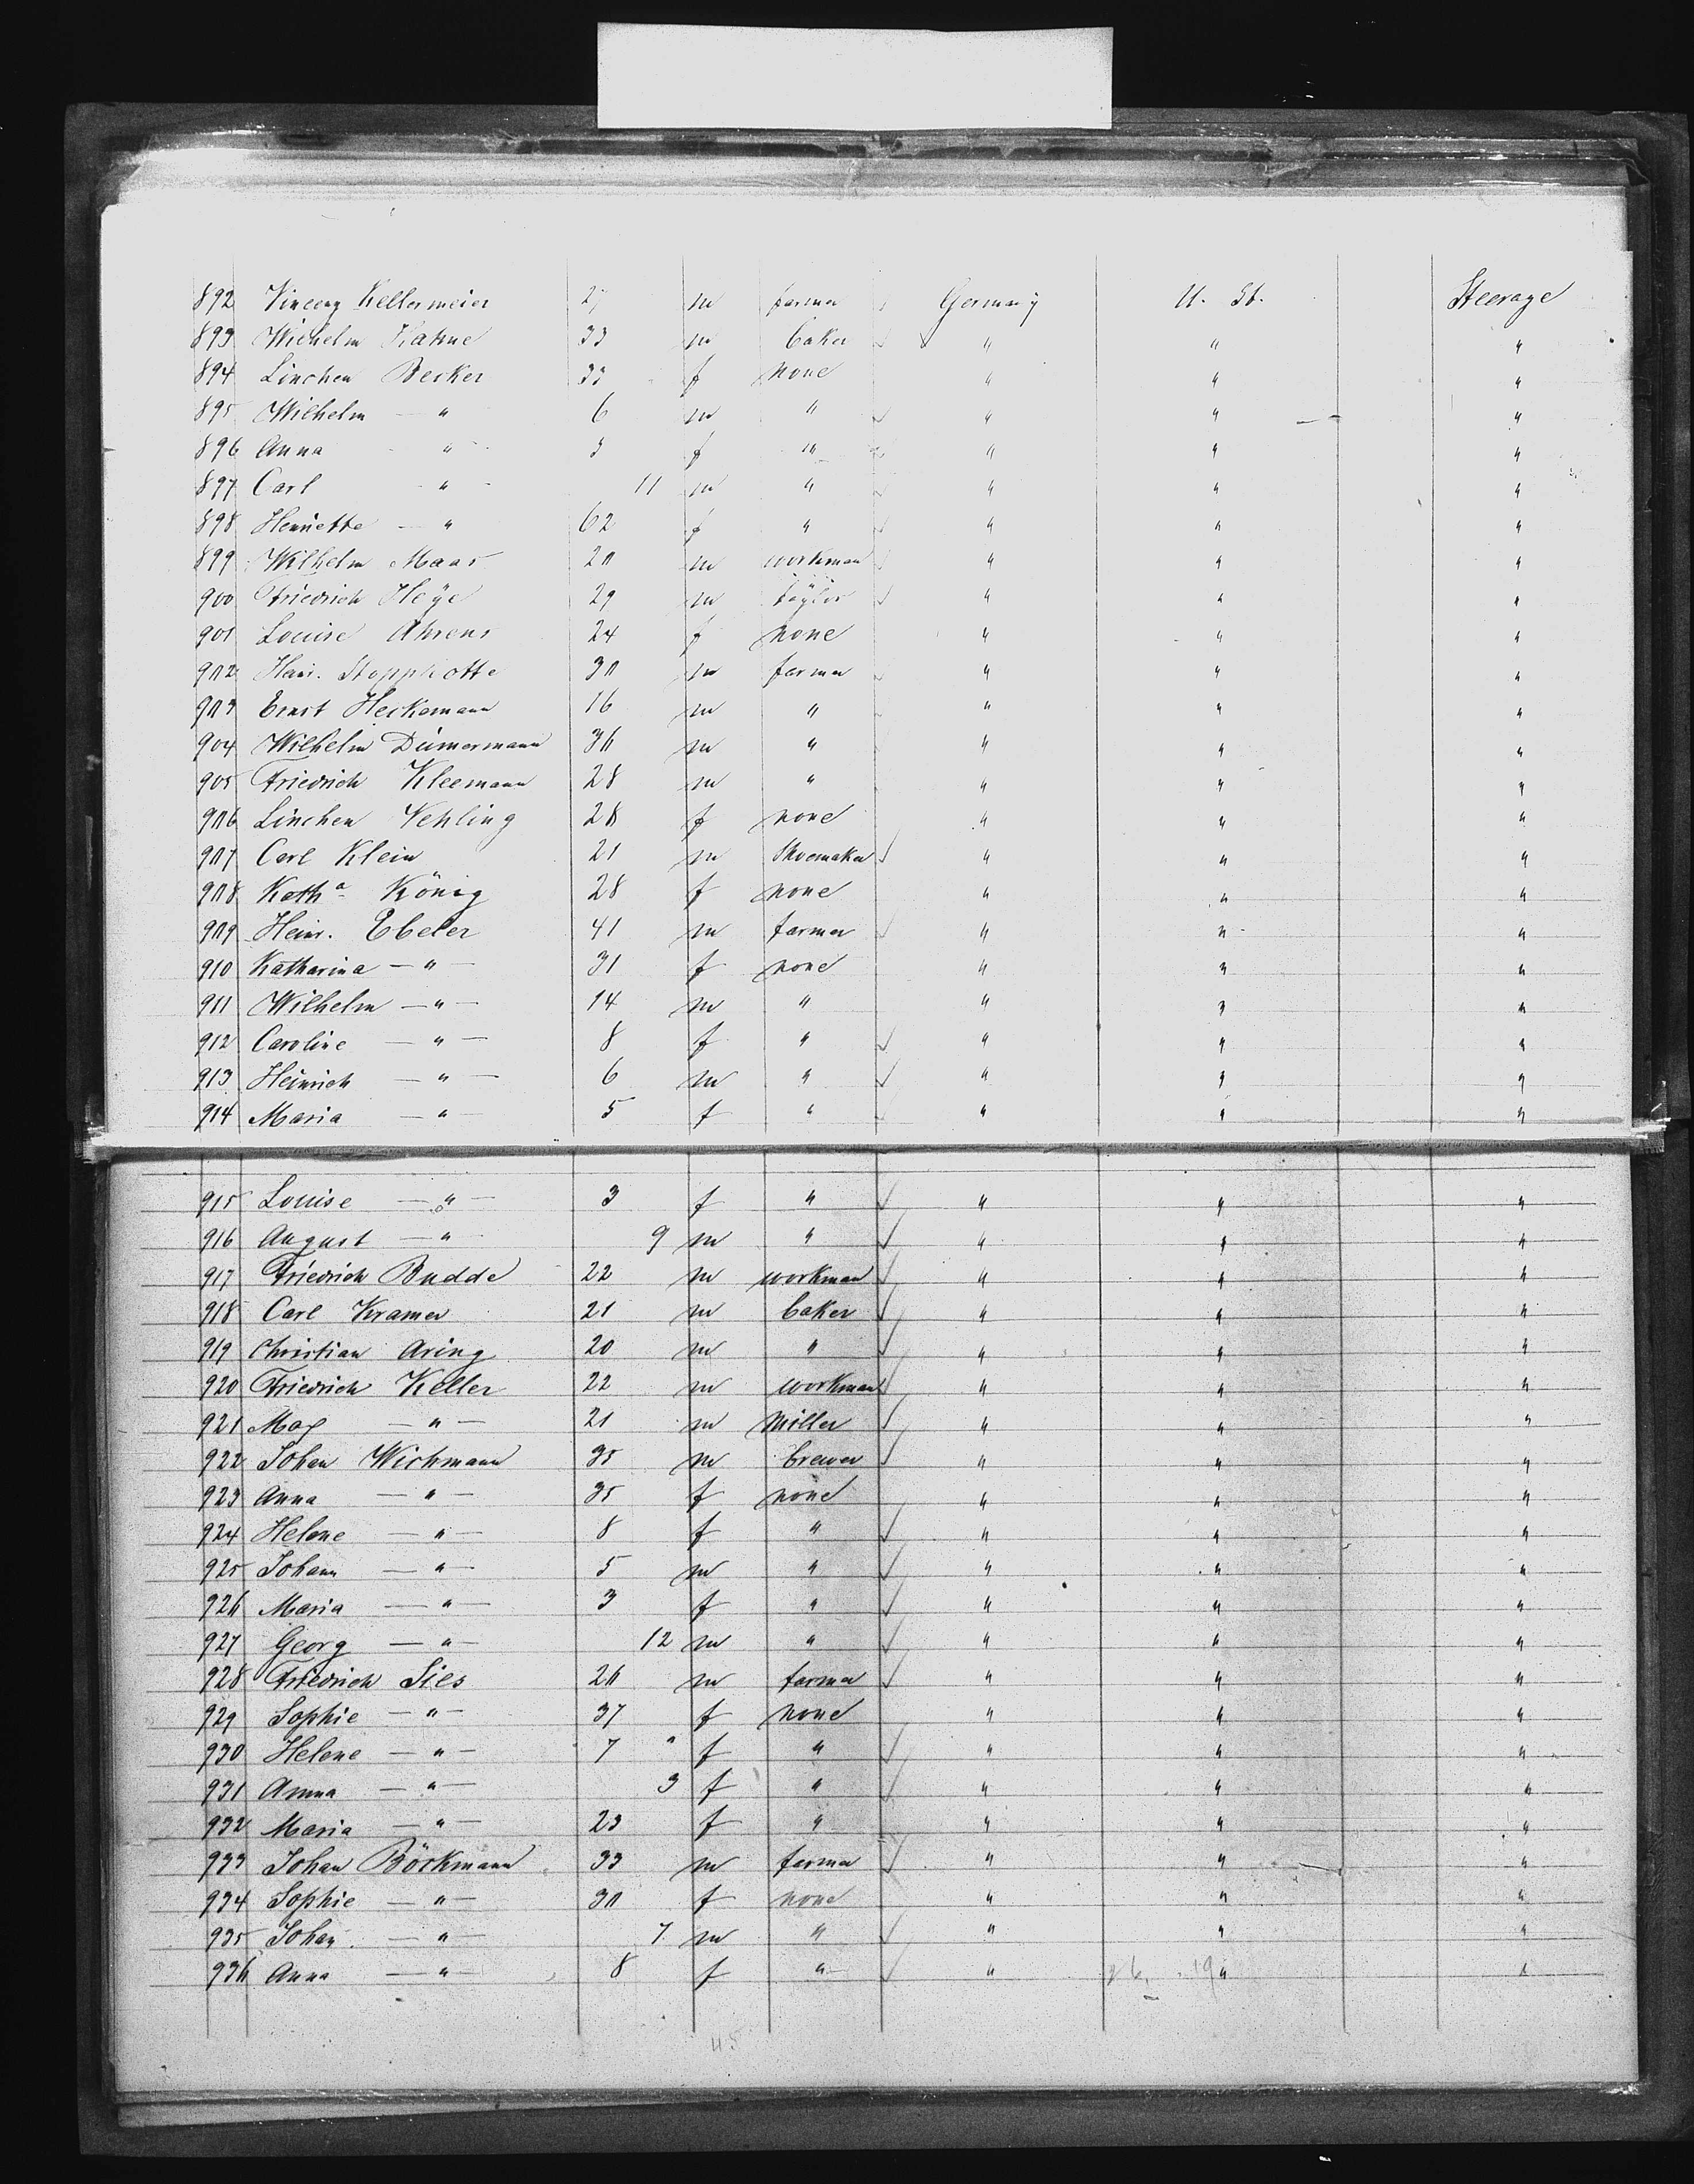 892 Vincenz Kellermeier 27 m farmer Germany U. St. Steerage
893 Wilhelm Hahne 33 m baker " " "
894 Linchen Becker 33 f none " " "
895 Wilhelm — " 6 m " " " "
896 Anna " — 3 f " " " "
897 Carl " — 11 m " " " "
898 Henriette — " 62 f " " " "
899 Wilhelm Maas 20 m workman " " "
900 Friedrich Heÿe 29 m taÿlor " " "
901 Louise Ahrens 24 f none " " "
902 Heinr. 30 m farmer " " "
903 Ernst Heckemann 16 m " " " "
904 Wilhelm Dümermann 36 m " " " "
905 Friedrich Kleemann 28 m " " " "
906 Linchen Vehling 28 f none " " "
907 Carl Klein 21 m Shoemaker " " "
908 Kath.a König 28 f none " " "
909 Heinr. Ebeler 41 m farmer " " "
910 Katharina — " — 31 f none " " "
911 Wilhelm — " — 14 m " " " "
912 Caroline — " — 8 f " " " "
913 Heinrich — " — 6 m " " " "
914 Maria — " — 5 f " " " "
915 Louise — " — 3 f " " " "
916 August — " 9 m " " " "
917 Friedrich Budde 22 m workman " " "
918 Carl Kramer 21 m baker " " "
919 Christian Aring 20 m " " " "
920 Friedrich Keller 22 m workman " " "
921 Max — " — 21 m Miller " " "
922 Johan Wichmann 35 m brewer " " "
923 Anna — " — 35 f none " " "
924 Helene — " — 8 f " " " "
925 Johann — " — 5 m " " " "
926 Maria — " — 3 f " " " "
927 Georg — " — 12 m " " " "
928 Friedrich Sies 26 m farmer " " "
929 Sophie — " — 37 f none " " "
930 Helene — " — 7 " f " " " "
931 Anna — " — 3 f " " " "
932 Maria — " — 23 f " " " "
933 Johan Böckmann 33 m farmer " " "
934 Sophie — " — 30 f none " " "
935 Johan. — " — 7 m " " " "
936 Anna — " — 8 f " " " "
45